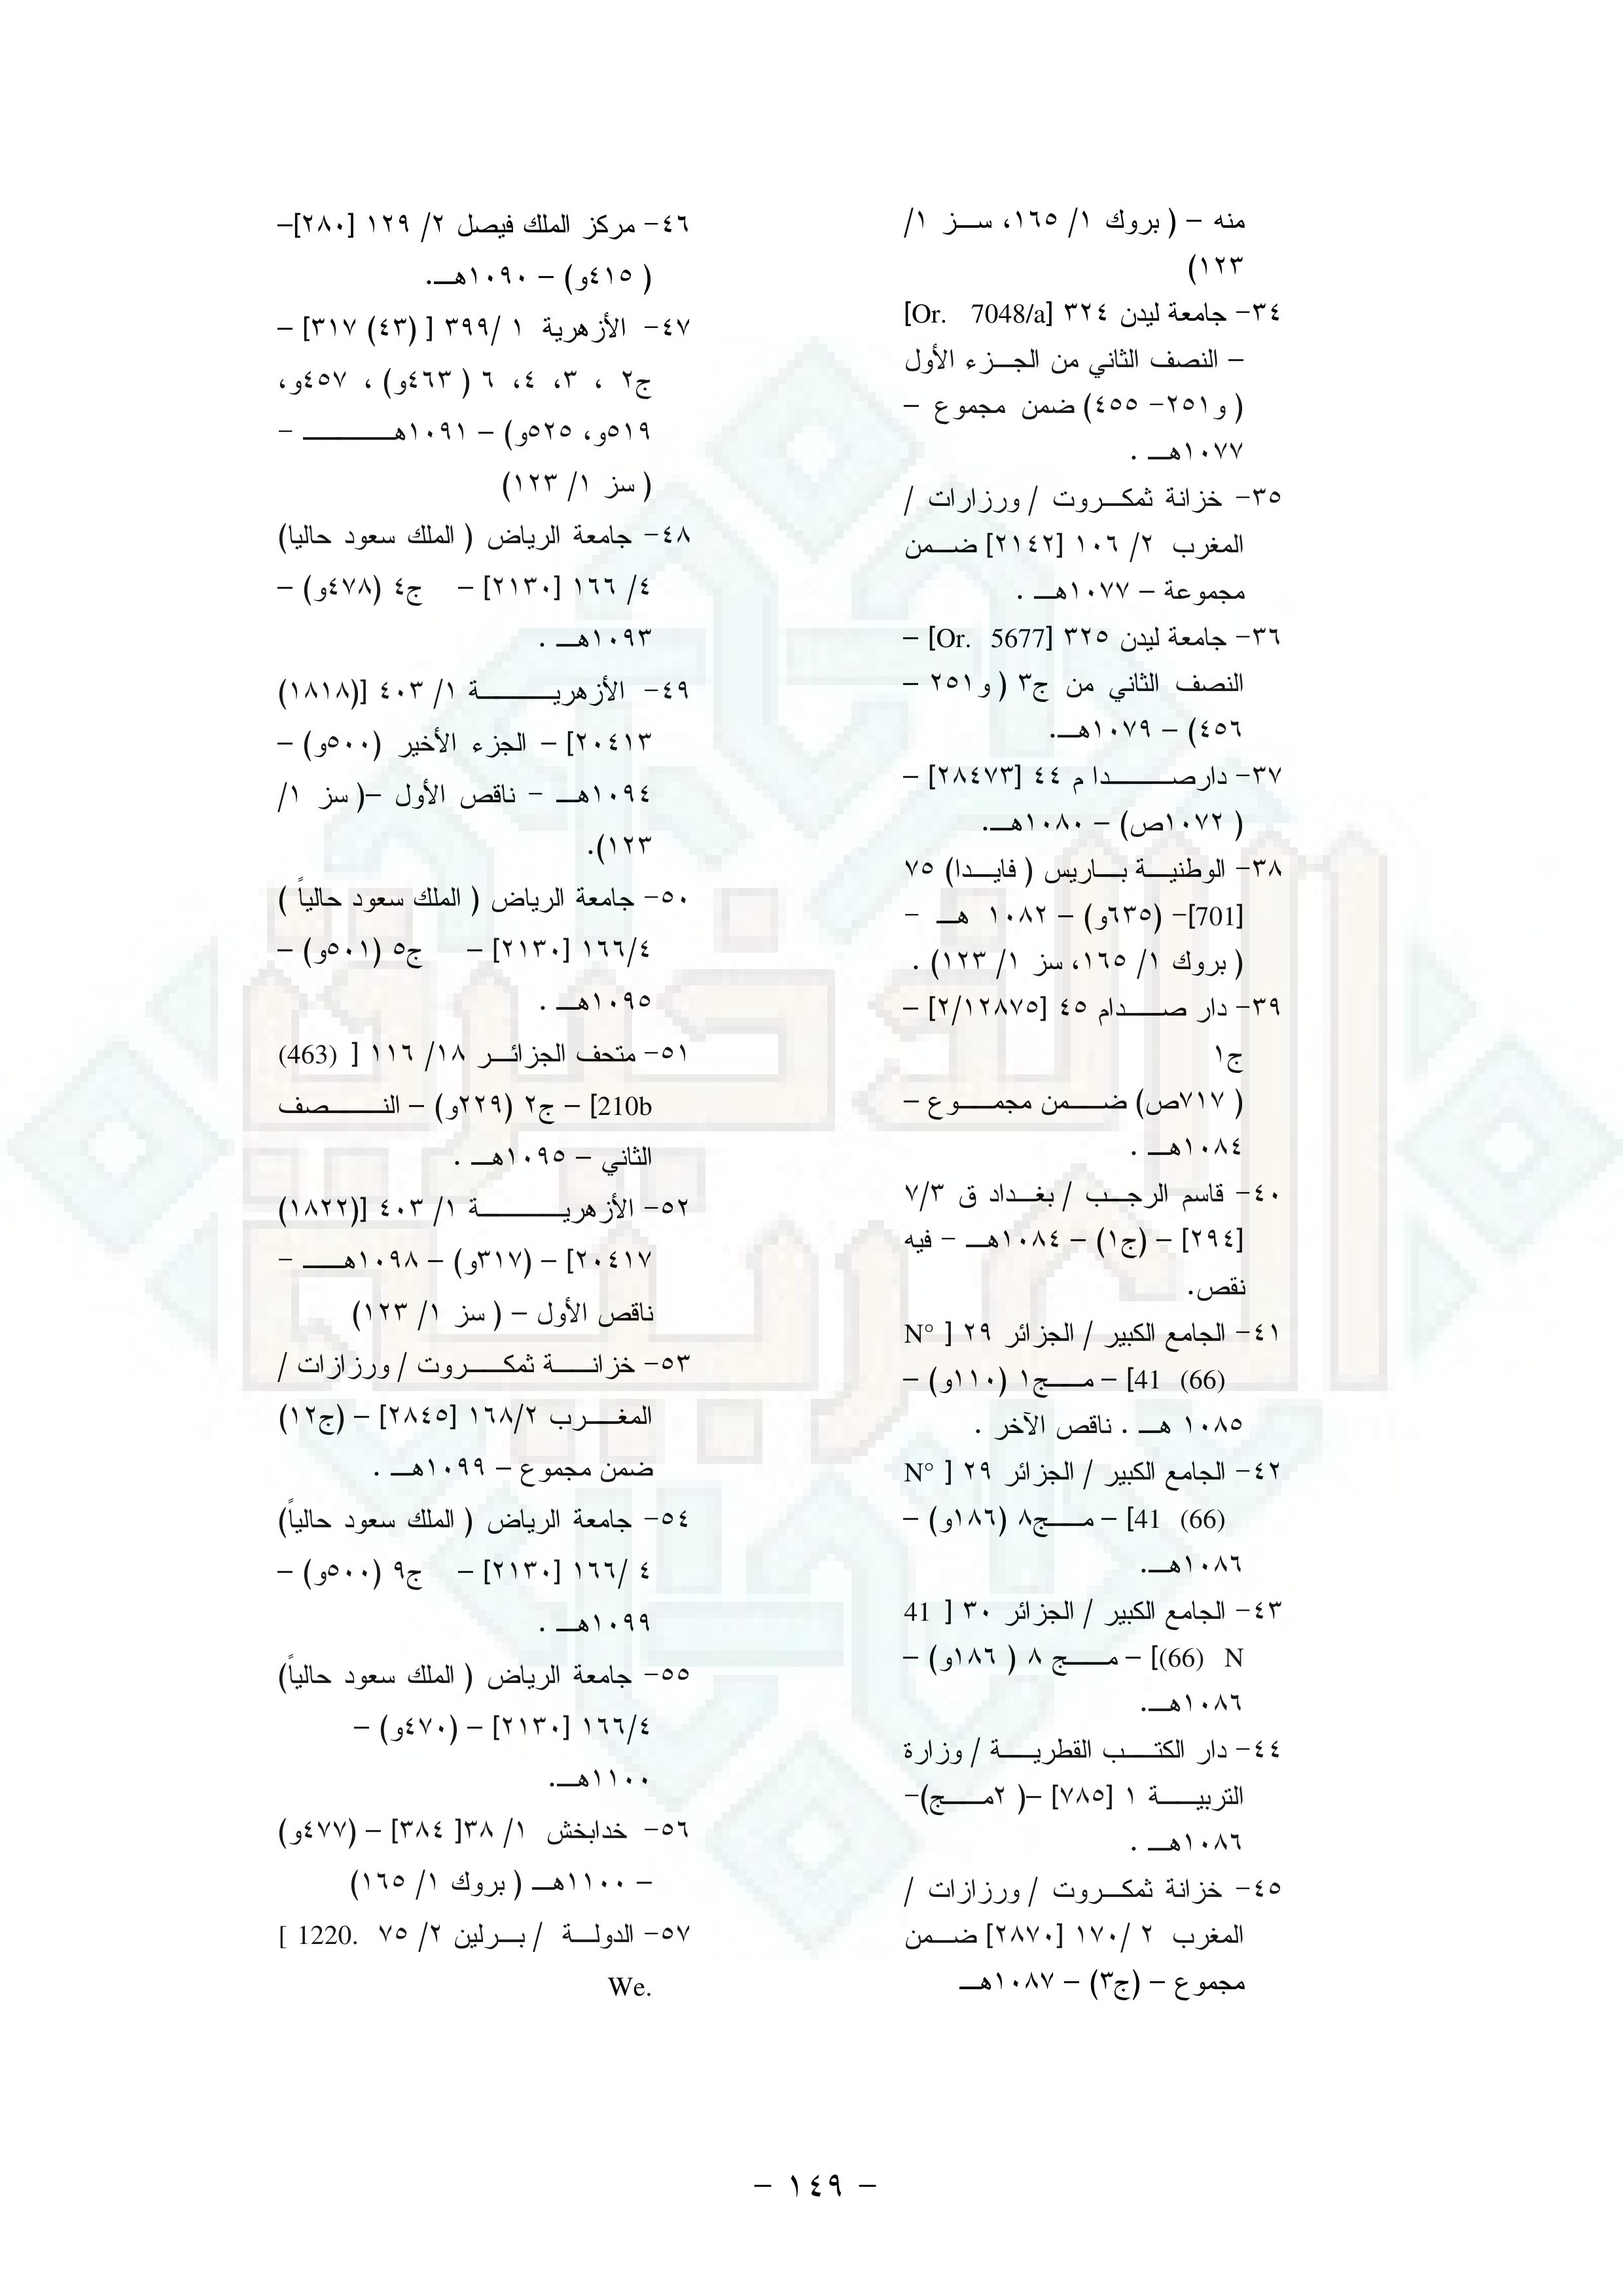 منه – ( بروك ١/ ١٦٥، سـز ١/
١٢٣)
٣٤- جامعة ليدن ٣٢٤ [Or. 7048/a]
– النصف الثاني من الجـزء الأول
( و٢٥١- ٤٥٥) ضمن مجموع –
١٠٧٧هـ .
٣٥- خزانة ثمكـروت / ورزارات /
المغرب ٢/ ١٠٦ [٢١٤٢] ضـمن
مجموعة – ١٠٧٧هـ .
٣٦- جامعة ليدن ٣٢٥ [Or. 5677] –
النصف الثاني من ج٣ ( و٢٥١ –
٤٥٦) – ١٠٧٩هـ.
٣٧- دارصـدا م ٤٤ [٢٨٤٧٣] –
( ١٠٧٢ص) – ١٠٨٠هـ.
٣٨- الوطنيـة بـاريس ( فايـدا) ٧٥
[701]- (٦٣٥و) – ١٠٨٢ هـ –
( بروك ١/ ١٦٥، سز ١/ ١٢٣) .
٣٩- دار صـدام ٤٥ [٢/١٢٨٧٥] –
ج١
( ٧١٧ص) ضـمن مجمـوع –
١٠٨٤هـ .
٤٠- قاسم الرجـب / بغـداد ق ٧/٣
[٢٩٤] – (ج١) – ١٠٨٤هـ – فيه
نقص.
٤١- الجامع الكبير / الجزائر ٢٩ [ N°
41 (66)] – مـج١ (١١٠و) –
١٠٨٥ هـ . ناقص الآخر .
٤٢- الجامع الكبير / الجزائر ٢٩ [ N°
41 (66)] – مـج٨ (١٨٦و) –
١٠٨٦هـ.
٤٣- الجامع الكبير / الجزائر ٣٠ [ 41
N (66)] – مـج ٨ ( ١٨٦و) –
١٠٨٦هـ.
٤٤- دار الكتـب القطريـة / وزارة
التربيـة ١ [٧٨٥] –( ٢مـج)-
١٠٨٦هـ .
٤٥- خزانة ثمكـروت / ورزازات /
المغرب ٢ /١٧٠ [٢٨٧٠] ضـمن
مجموع – (ج٣) – ١٠٨٧هـ
٤٦- مركز الملك فيصل ٢/ ١٢٩ [٢٨٠]–
( ٤١٥و) – ١٠٩٠هـ.
٤٧- الأزهرية ١ /٣٩٩ [ (٤٣) ٣١٧] –
ج٢ ، ٣، ٤، ٦ ( ٤٦٣و) ، ٤٥٧و،
٥١٩و، ٥٢٥و) – ١٠٩١هـ –
( سز ١/ ١٢٣)
٤٨- جامعة الرياض ( الملك سعود حاليا)
٤/ ١٦٦ [٢١٣٠] – ج٤ (٤٧٨و) –
١٠٩٣هـ .
٤٩- الأزهريـة ١/ ٤٠٣ [(١٨١٨)
٢٠٤١٣] – الجزء الأخير (٥٠٠و) –
١٠٩٤هـ – ناقص الأول –( سز ١/
١٢٣).
٥٠- جامعة الرياض ( الملك سعود حالياً )
١٦٦/٤ [٢١٣٠] – ج٥ (٥٠١و) –
١٠٩٥هـ .
٥١- متحف الجزائـر ١٨/ ١١٦ [ (463)
210b] – ج٢ (٢٢٩و) – النـصف
الثاني – ١٠٩٥هـ .
٥٢- الأزهريـة ١/ ٤٠٣ [(١٨٢٢)
٢٠٤١٧] – (٣١٧و) – ١٠٩٨هـ –
ناقص الأول – ( سز ١/ ١٢٣)
٥٣- خزانـة ثمكـروت / ورزازات /
المغـرب ١٦٨/٢ [٢٨٤٥] – (ج١٢)
ضمن مجموع – ١٠٩٩هـ .
٥٤- جامعة الرياض ( الملك سعود حالياً)
٤ /١٦٦ [٢١٣٠] – ج٩ (٥٠٠و) –
١٠٩٩هـ .
٥٥- جامعة الرياض ( الملك سعود حالياً)
١٦٦/٤ [٢١٣٠] – (٤٧٠و) –
١١٠٠هـ.
٥٦- خدابخش ١/ ٣٨[ ٣٨٤] – (٤٧٧و)
– ١١٠٠هـ ( بروك ١/ ١٦٥)
٥٧- الدولـة / بـرلين ٢/ ٧٥ .1220 [
We.
– ١٤٩ –